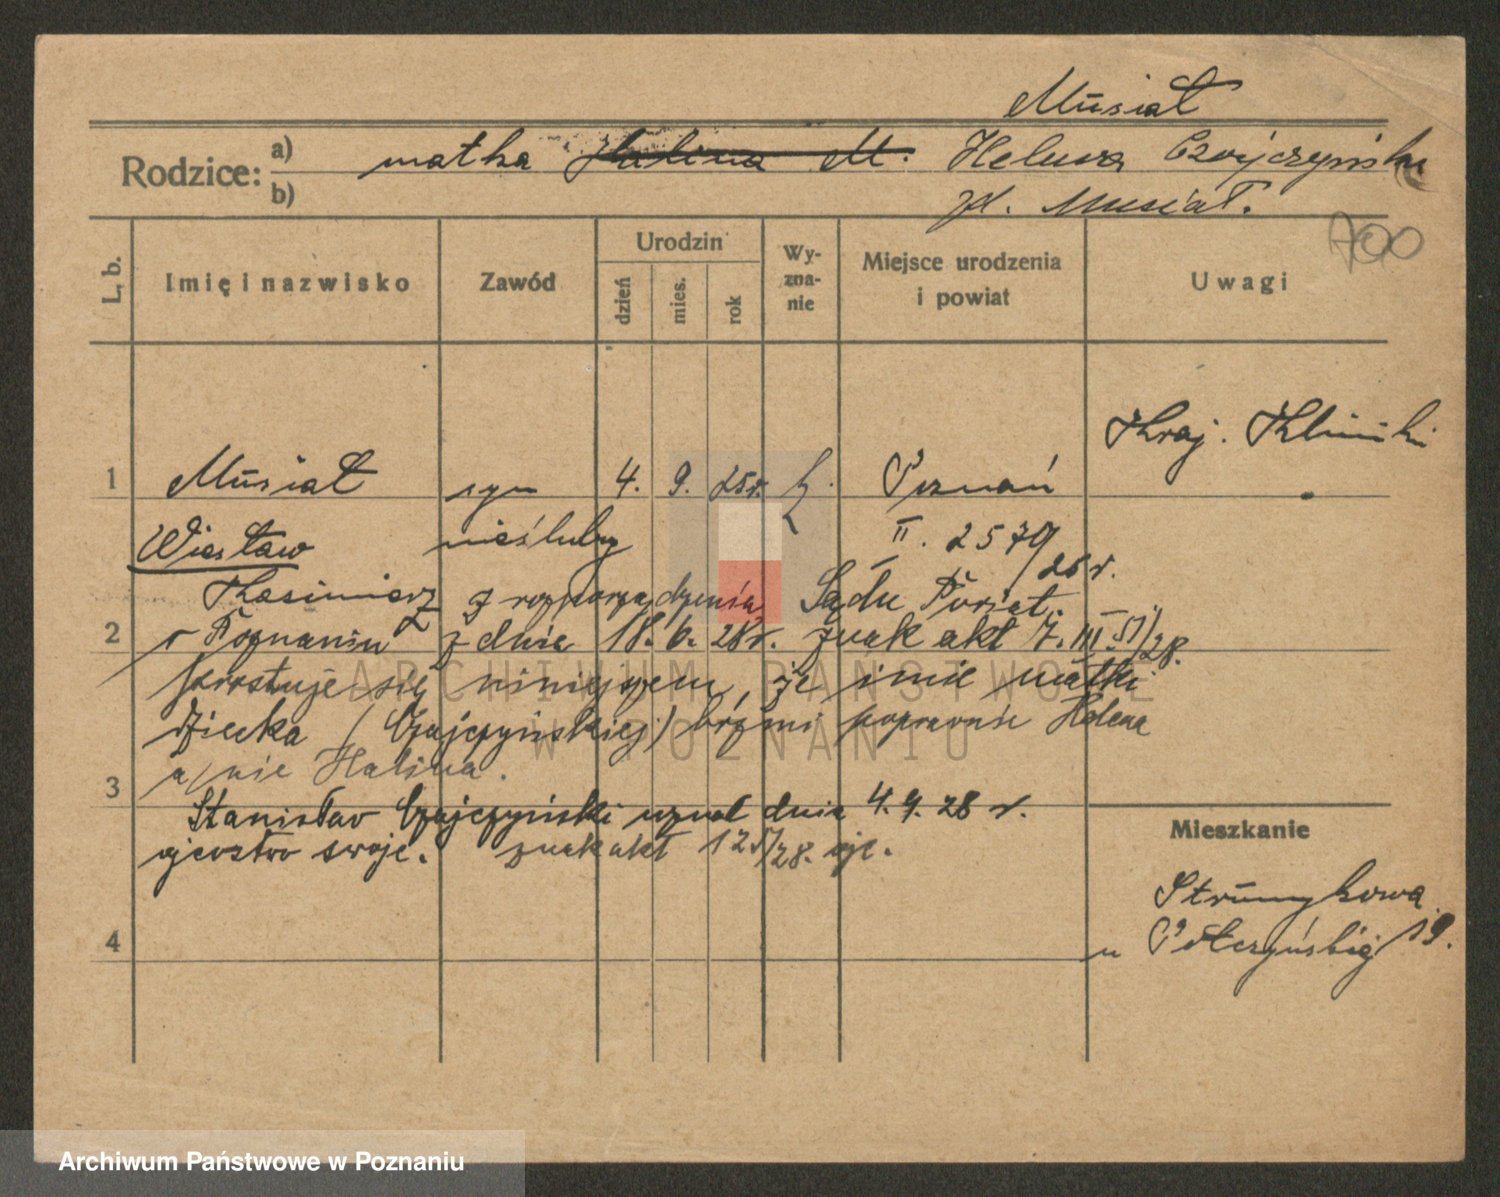 Musiał
Rodzice: a) matka Halina M. Helena Czajczyńska
b) zd. Musiał.
L. b.
Imię i nazwisko
Zawód
Urodzin
dzień
mies.
rok
Wy-
zna-
nie
Miejsce urodzenia
i powiat
Uwagi
700
Kraj. Kliniki
1 Musiał syn 4. 9. 25r. Poznań
Wiesław nieślubny II. 2579/25 r.
Kazimierz z rozporządzenia Sądu Powiat.
2 w Poznaniu z dnia 18. 6. 28 r. znak akt 7. III. 51/28.
prostuje się niniejszem, że imię matki
dziecka (Czajczyńskiej) brzmi poprawnie Helena
a nie Halina.
3
Stanisław Czajczyński uznał dnia 4. 9. 28 r.
ojcostwo swoje. znak akt 125/28. ojc.
4
Mieszkanie
Strumykowa
u Pełczyńskiej 19.
ARCHIWUM PAŃSTWOWE
W POZNANIU
Archiwum Państwowe w Poznaniu